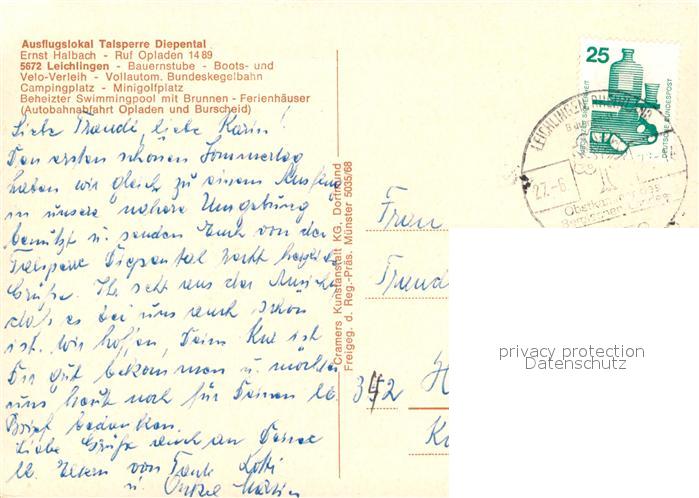 Ausflugslokal Talsperre Diepental
Ernst Halbach - Ruf Opladen 1489
5672 Leichlingen - Bauernstube - Boots- und
Velo-Verleih - Vollautom. Bundeskegelbahn
Campingplatz - Minigolfplatz
Beheizter Swimmingpool mit Brunnen - Ferienhäuser
(Autobahnabfahrt Opladen und Burscheid)
Liebe Traudi, liebe Karin!
Den ersten schönen Sommertag
haben wir gleich zu einem Ausflug
in unsere nähere Umgebung
benutzt u. senden Euch von der
Talsperre Diepental recht herzliche
Grüße. Ihr seht aus der Ansicht
daß es bei uns auch schön
ist. Wir hoffen, Deine Kur ist
Dir gut bekommen u. möchten
uns heute noch für Deinen lb.
Brief bedanken.
Liebe Grüße auch an Deine
lb. Eltern von Tante Lotti
u. Onkel
Cramers Kunstanstalt KG, Dortmund
Freigeg. d. Reg.-Präs. Münster 5035/68
25
DEUTSCHE BUNDESPOST
LEICHLINGEN
27.-6.
Obstkammer des
Bergischen Landes
Frau
Traudi
342
privacy protection
Datenschutz